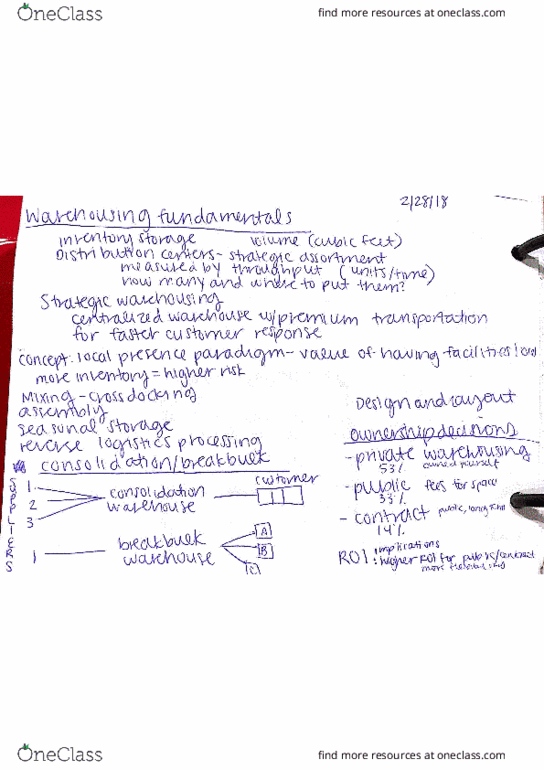 OneClass
find more resources at oneclass.com
2/28/18
Warehousing fundamentals
inventory storage volume (cubic feet)
Distribution centers - strategic assortment
measured by throughput (units/time)
how many and where to put them?
Strategic warehousing
centralized warehouse w/premium transportation
for faster customer response
concept: local presence paradigm - value of having facilities local
more inventory = higher risk
Mixing - cross docking
assembly
seasonal storage
reverse logistics processing
consolidation/breakbulk
SUPPLIERS
1
2
3
consolidation
warehouse
customer
1
breakbulk
warehouse
A
B
C
Design and layout
ownership decisions
- private warehousing
53% owned yourself
- public fees for space
33%
- contract public, long time
14%
ROI: implications
: higher ROI for public/contract
more
OneClass
find more resources at oneclass.com